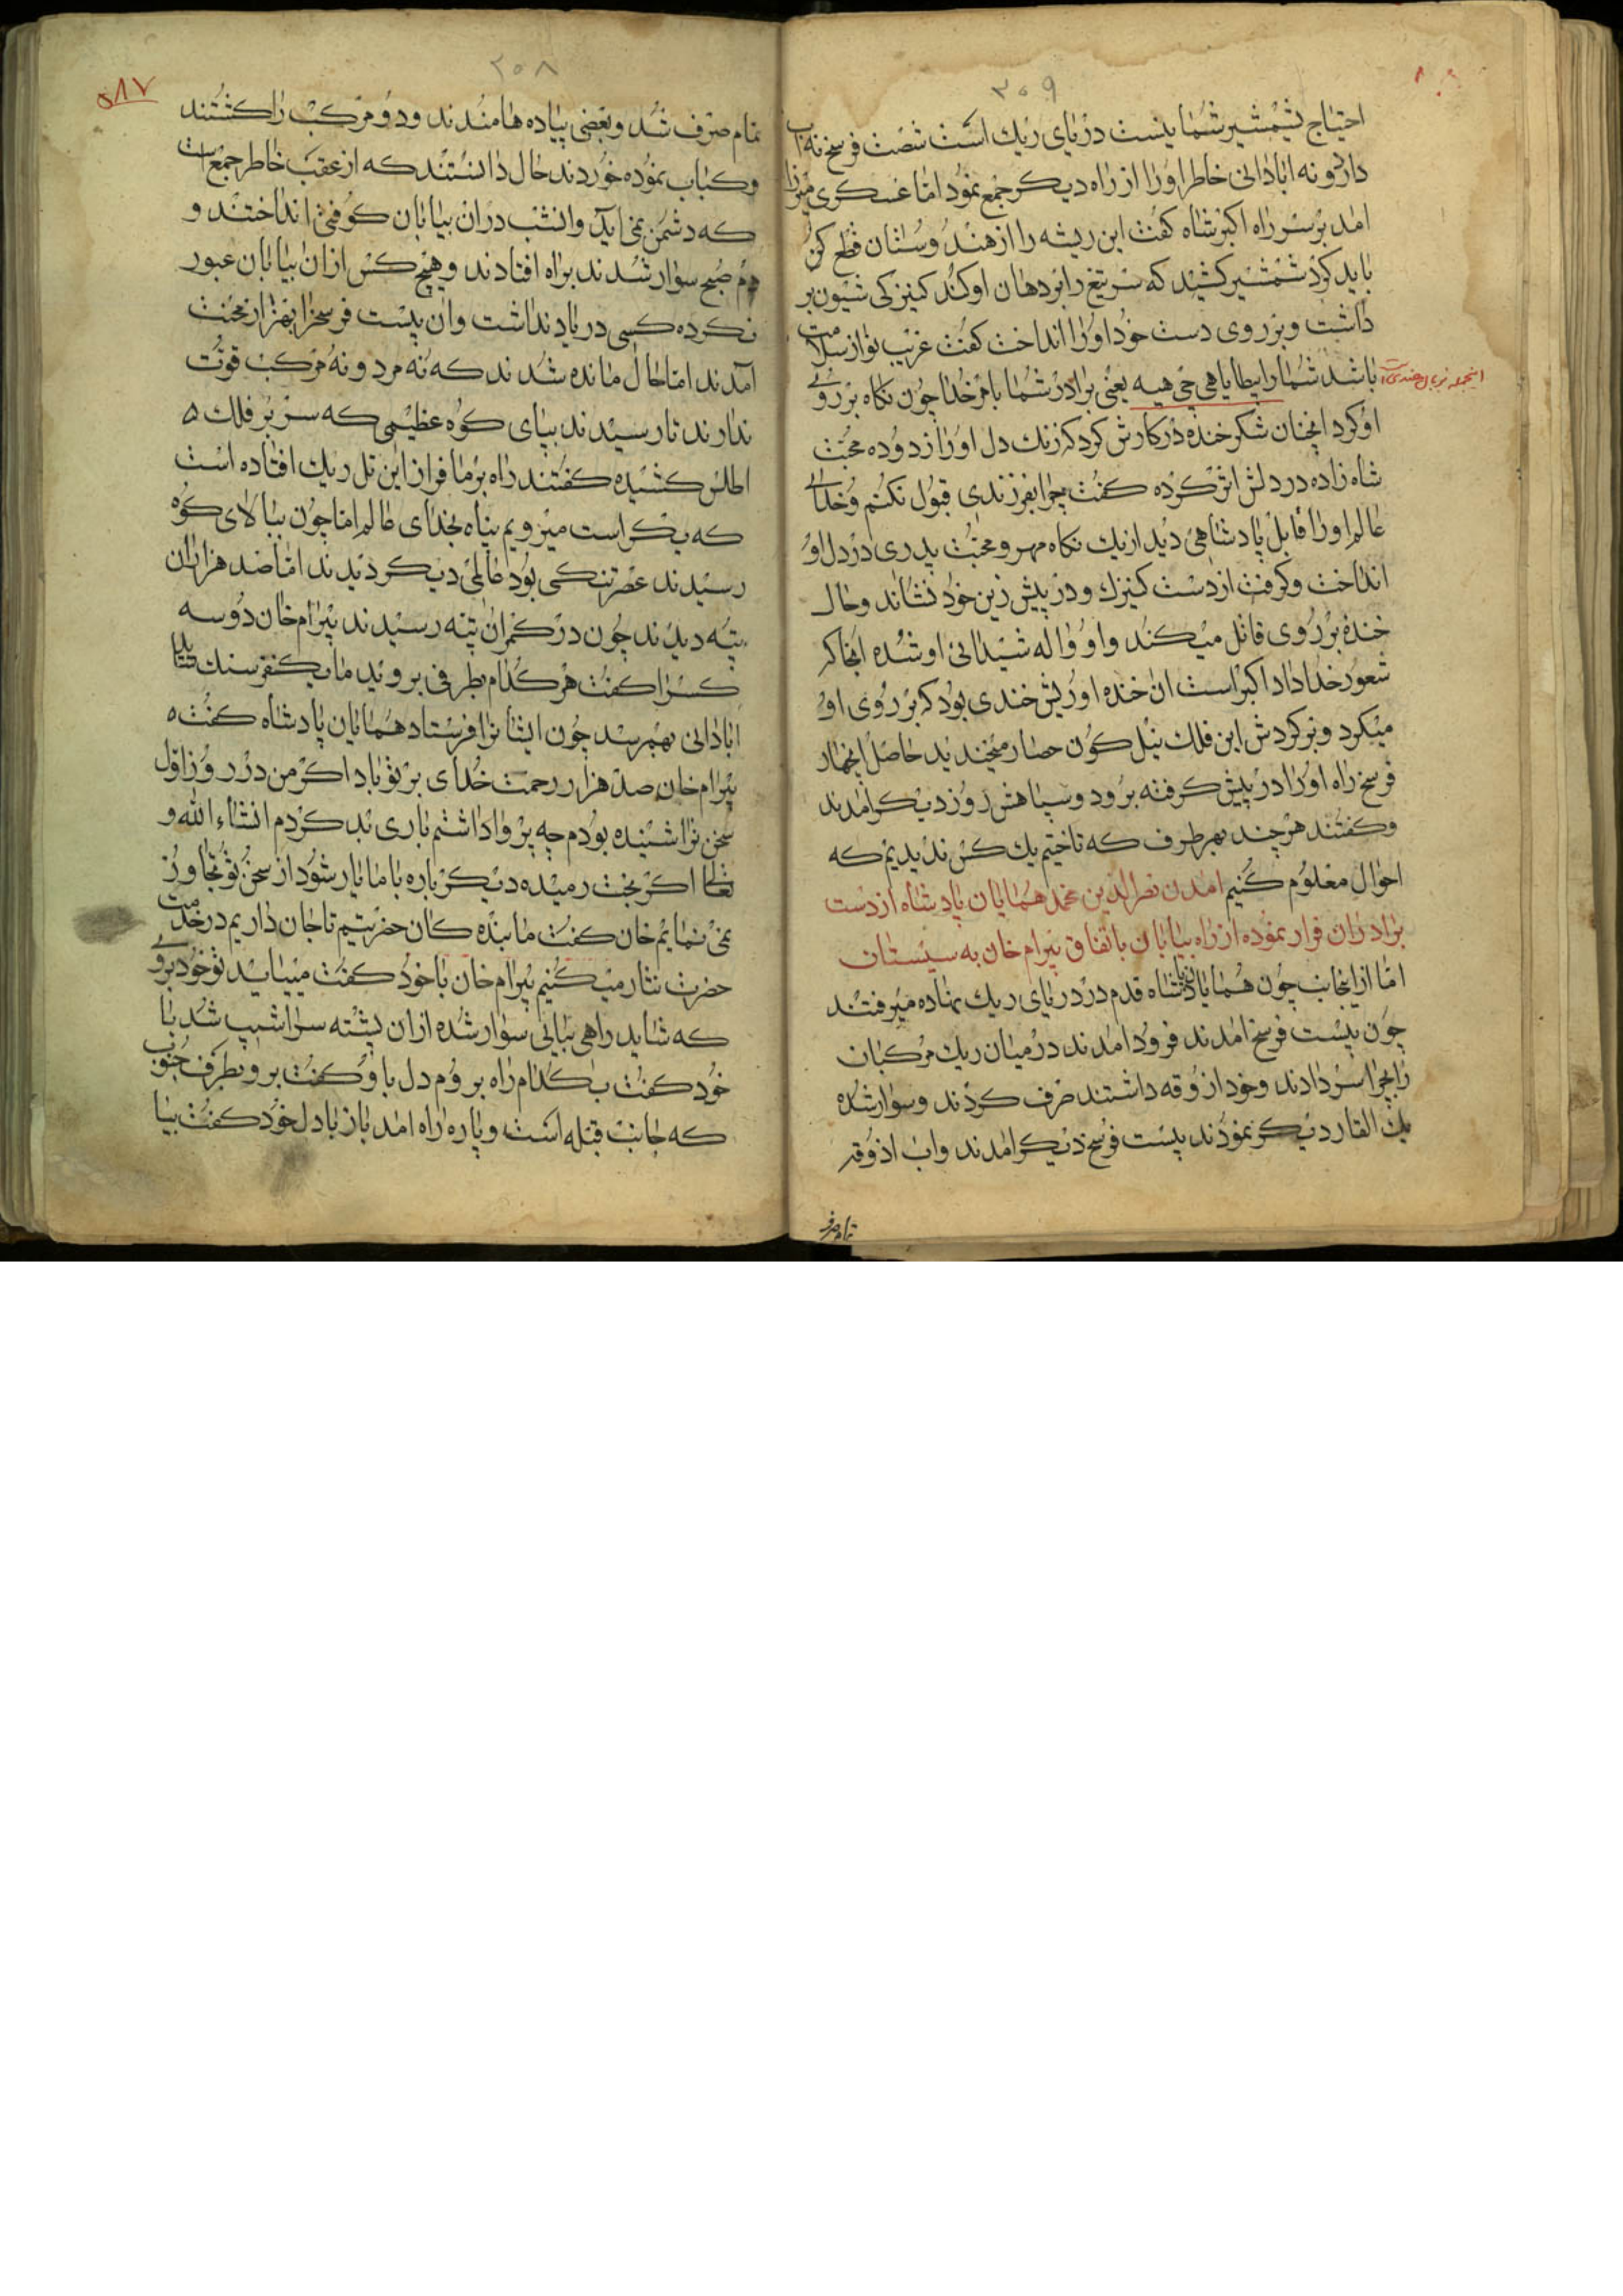 ۳۰۹
احتیاج بشمشیر شما نیست دریای ریك است شصت فرسخ نه اب
دارد و نه ابادانی خاطر او را از راه دیکر جمع نمود اما عسکری میرزا
امد بر سر راه اکبر شاه کفت این ریشه را از هندوستان قطع کن
باید کرد شمشیر کشید که سر تیغ را بر دهان او کند کنیزکی شیون بر
داشت و بر روی دست خود او را انداخت کفت غریب نواز سلامت
باشد شما را بیطا یاهی جی هیه یعنی برادر شما بامر خدا چون نکاه بر روی
اینجمله بزبان هندیست
او کرد انچنان شکر خنده در کارش کرد که زنك دل او را زدوده محبت
شاه زاده در دلش اثر کرده کفت چرا بفرزندی قبول نکنم و خدای
عالم او را قابل پادشاهی دید از یك نکاه مهر و محبت پدری در دل او
انداخت و کرفت از دست کنیزك و در پیش زین خود نشاند و حال
خنده بر روی قاتل میکند و او واله شیدائی او شده انجا که
شعور خداداد اکبر است ان خنده او ریش خندی بود که بر روی او
میکرد و بر کردش این فلك نیل کون حصار میخندید حاصل انچهار
فرسخ راه او را در پیش کرفته برود و سپاهش روز دیکر امدند
و کفتند هر چند بهر طرف که تاختیم یك کس ندیدیم که
احوال معلوم کنیم امدن نصرالدین محمد همایان پادشاه از دست
برادران فرار نموده از راه بیابان باتفاق بیرام خان به سیستان
اما از اینجانب چون همایان پادشاه قدم در دریای ریك نهاده میرفتند
چون بیست فرسخ امدند فرود امدند در میان ریك مرکبان
را بچرا سر دادند و خود ازوقه داشتند صرف کردند و سوار شده
یك الغار دیکر نمودند بیست فرسخ دیکر امدند و اب اذوقه
تمام صرف
۳۰۸
۵۸۷
تمام صرف شد و بعضی پیاده ها مندند و دو مرکب را کشتند
و کباب نموده خوردند حال دانستند که از عقب خاطر جمع است
که دشمن نمی اید و انشب در ان بیابان کوفتی انداختند و
دم صبح سوار شدند براه افتادند و هیچ کس از ان بیابان عبور
نکرده کسی در یاد نداشت و ان بیست فرسخ را بهزار محنت
آمدند اما بحال مانده شدند که نه مرد و نه مرکب قوت
ندارند تا رسیدند بپای کوه عظیمی که سر بر فلك
اطلس کشیده کفتند راه بر ما فراز این تل ریك افتاده است
که یکراست میرویم پناه بخدای عالم اما چون ببالای کوه
رسیدند عصر تنکی بود عالمی دیکر دیدند اما صد هزاران
تپه دیدند چون در کمر ان تپه رسیدند بیرام خان دو سه
کسرا کفت هر کدام بطرفی بروید ما بیکنفر سنك شاید
ابادانی بهم رسد چون ایشانرا فرستاد همایان پادشاه کفت
بیرام خان صد هزار رحمت خدای بر تو باد اکر من در روز اول
سخن ترا شنیده بودم چه پروا داشتم باری بد کردم انشاء الله و
تعالی اکر بخت رمیده دیکر باره با ما یار شود از سخن تو تجاوز
نمی نمایم خان کفت ما بنده کان حضرتیم تا جان داریم در خدمت
حضرت نثار میکنیم بیرام خان با خود کفت میباید تو خود بروی
که شاید راهی بیابی سوار شده از ان پشته سراشیب شد با
خود کفت بکدام راه بروم دل باو کفت برو بطرف جنوب
که جانب قبله است و پاره راه امد باز با دل خود کفت بیا